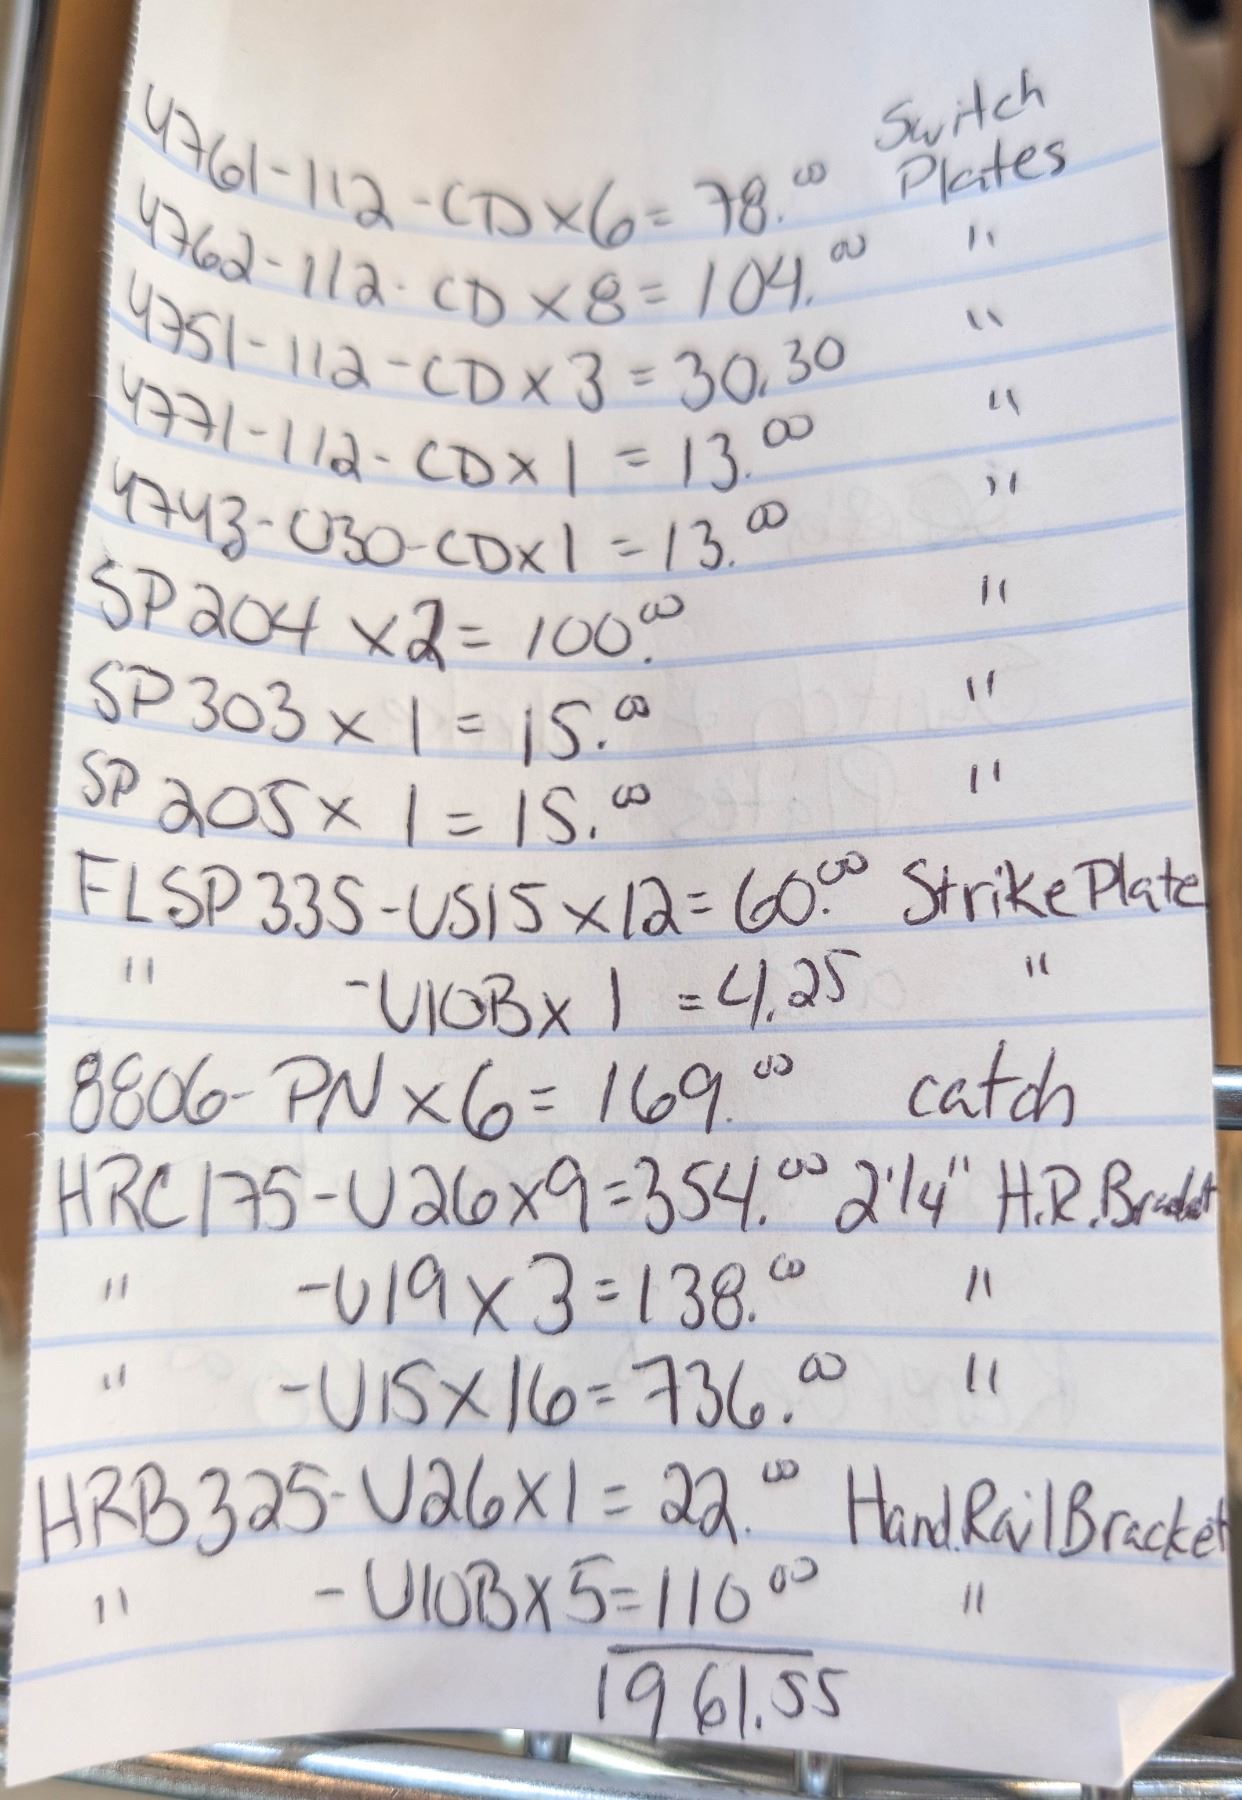 Switch
4761-112-CD x 6 = 78.00 Plates
4762-112-CD x 8 = 104.00 "
4751-112-CD x 3 = 30.30 "
4771-112-CD x 1 = 13.00 "
4743-U30-CD x 1 = 13.00 "
SP204 x 2 = 100.00 "
SP303 x 1 = 15.00 "
SP205 x 1 = 15.00 "
FLSP335-US15 x 12 = 60.00 Strike Plate
" -U10B x 1 = 4.25 "
8806-PN x 6 = 169.00 catch
HRC175-U26 x 9 = 354.00 2 1/4" H.R. Bracket
" -U19 x 3 = 138.00 "
" -U15 x 16 = 736.00 "
HRB325-U26 x 1 = 22.00 Hand.Rail Bracket
" -U10B x 5 = 110 00 "
1961.55